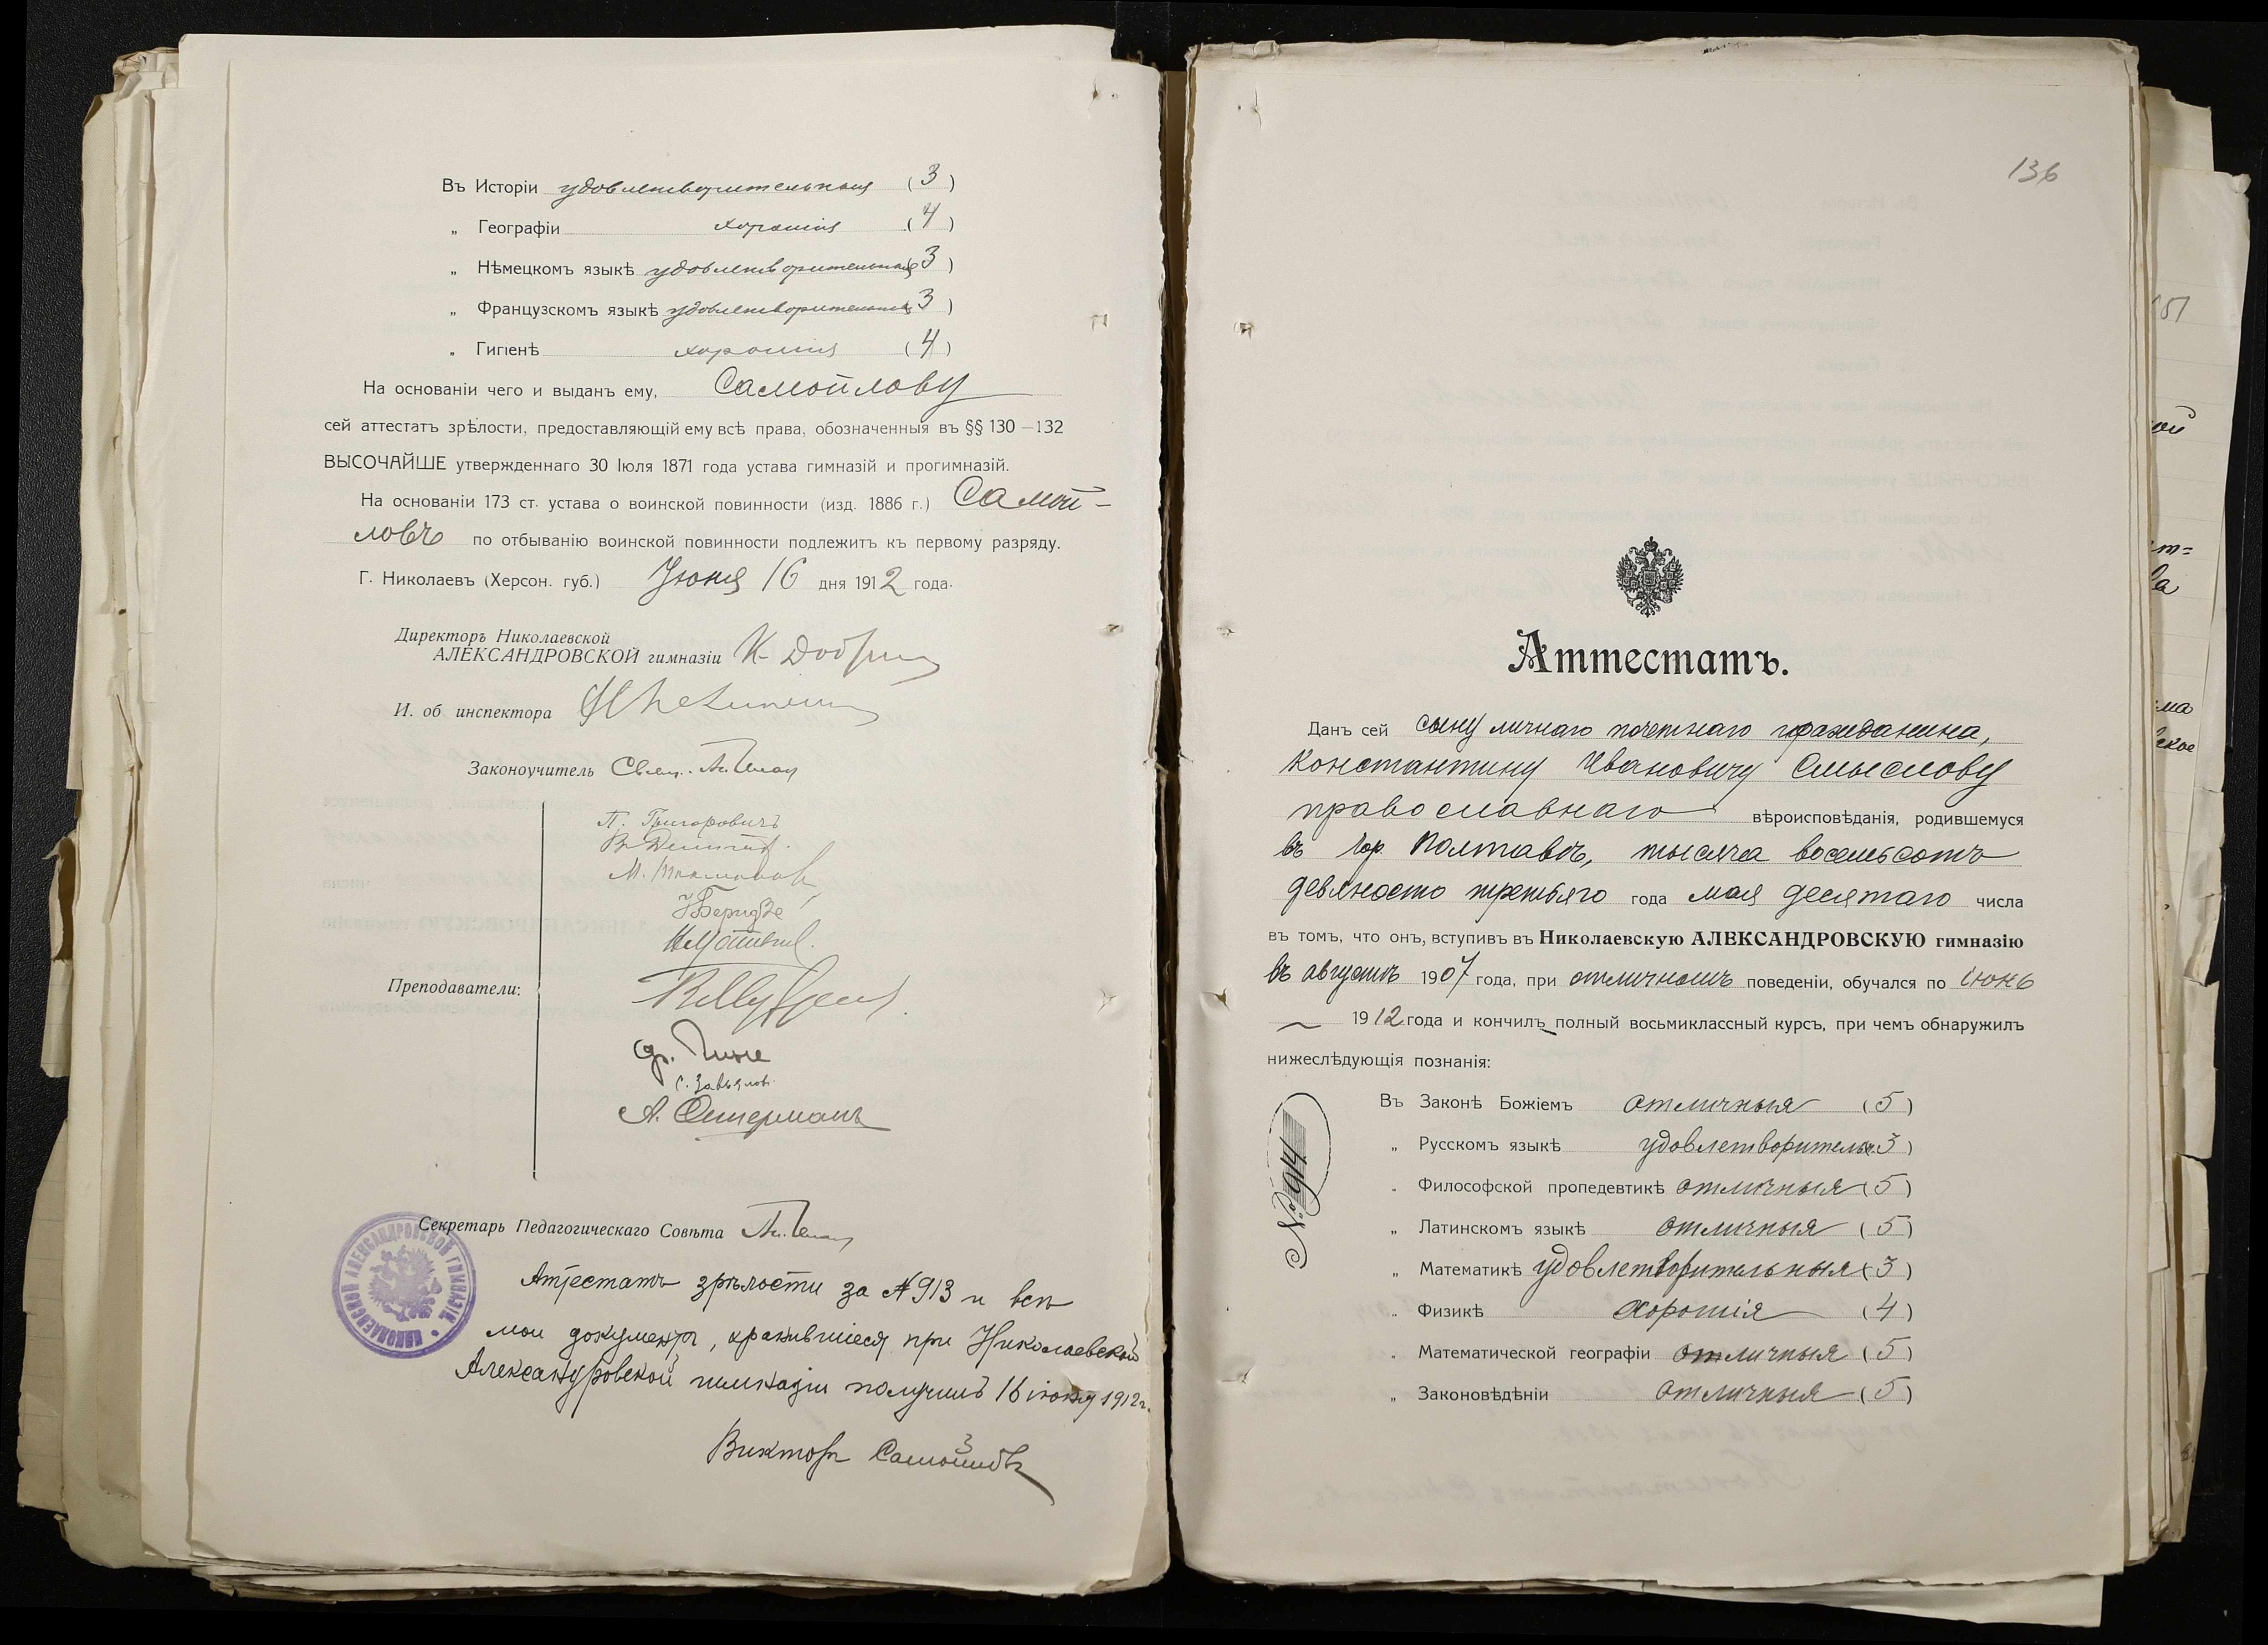 Въ Исторіи удовлетворительныя (3)
„ Географіи хорошія (4)
„ Нѣмецкомъ языкѣ удовлетворительныя (3)
„ Французскомъ языкѣ удовлетворительныя (3)
„ Гигіенѣ хорошія (4)
На основаніи чего и выданъ ему, Самойлову
сей аттестатъ зрѣлости, предоставляющій ему всѣ права, обозначенныя въ §§ 130—132
ВЫСОЧАЙШЕ утвержденнаго 30 Іюля 1871 года устава гимназій и прогимназій.
На основаніи 173 ст. устава о воинской повинности (изд. 1886 г.) Самой-
ловъ по отбыванію воинской повинности подлежитъ къ первому разряду.
Г. Николаевъ (Херсон. губ.) Іюня 16 дня 1912 года.
Директоръ Николаевской
АЛЕКСАНДРОВСКОЙ гимназіи К. Добр
И. об инспектора
Законоучитель Свящ.
П. Григоровичъ
Преподаватели:
С. Завьялов
А. Остерманъ
Секретарь Педагогическаго Совѣта
НИКОЛАЕВСКОЙ АЛЕКСАНДРОВСКОЙ ГИМНАЗІИ
Аттестатъ зрѣлости за № 913 и всѣ
мои документы, хранившіеся при Николаевской
Александровской гимназіи получилъ 16 іюня 1912 г.
Викторъ Самойловъ
136
Аттестатъ.
Данъ сей сыну личнаго почетнаго гражданина,
Константину Ивановичу Смыслову
православнаго вѣроисповѣданія, родившемуся
въ гор. Полтавѣ, тысяча восемьсотъ
девяносто третьяго года мая десятаго числа
въ томъ, что онъ, вступивъ въ Николаевскую АЛЕКСАНДРОВСКУЮ гимназію
въ августѣ 1907 года, при отличномъ поведеніи, обучался по Іюнь
1912 года и кончилъ полный восьмиклассный курсъ, при чемъ обнаружилъ
нижеслѣдующія познанія:
№ 914
Въ Законѣ Божіемъ отличныя (5)
„ Русскомъ языкѣ удовлетворительн. (3)
„ Философской пропедевтикѣ отличныя (5)
„ Латинскомъ языкѣ отличныя (5)
„ Математикѣ удовлетворительныя (3)
„ Физикѣ хорошія (4)
„ Математической географіи отличныя (5)
„ Законовѣдѣніи отличныя (5)